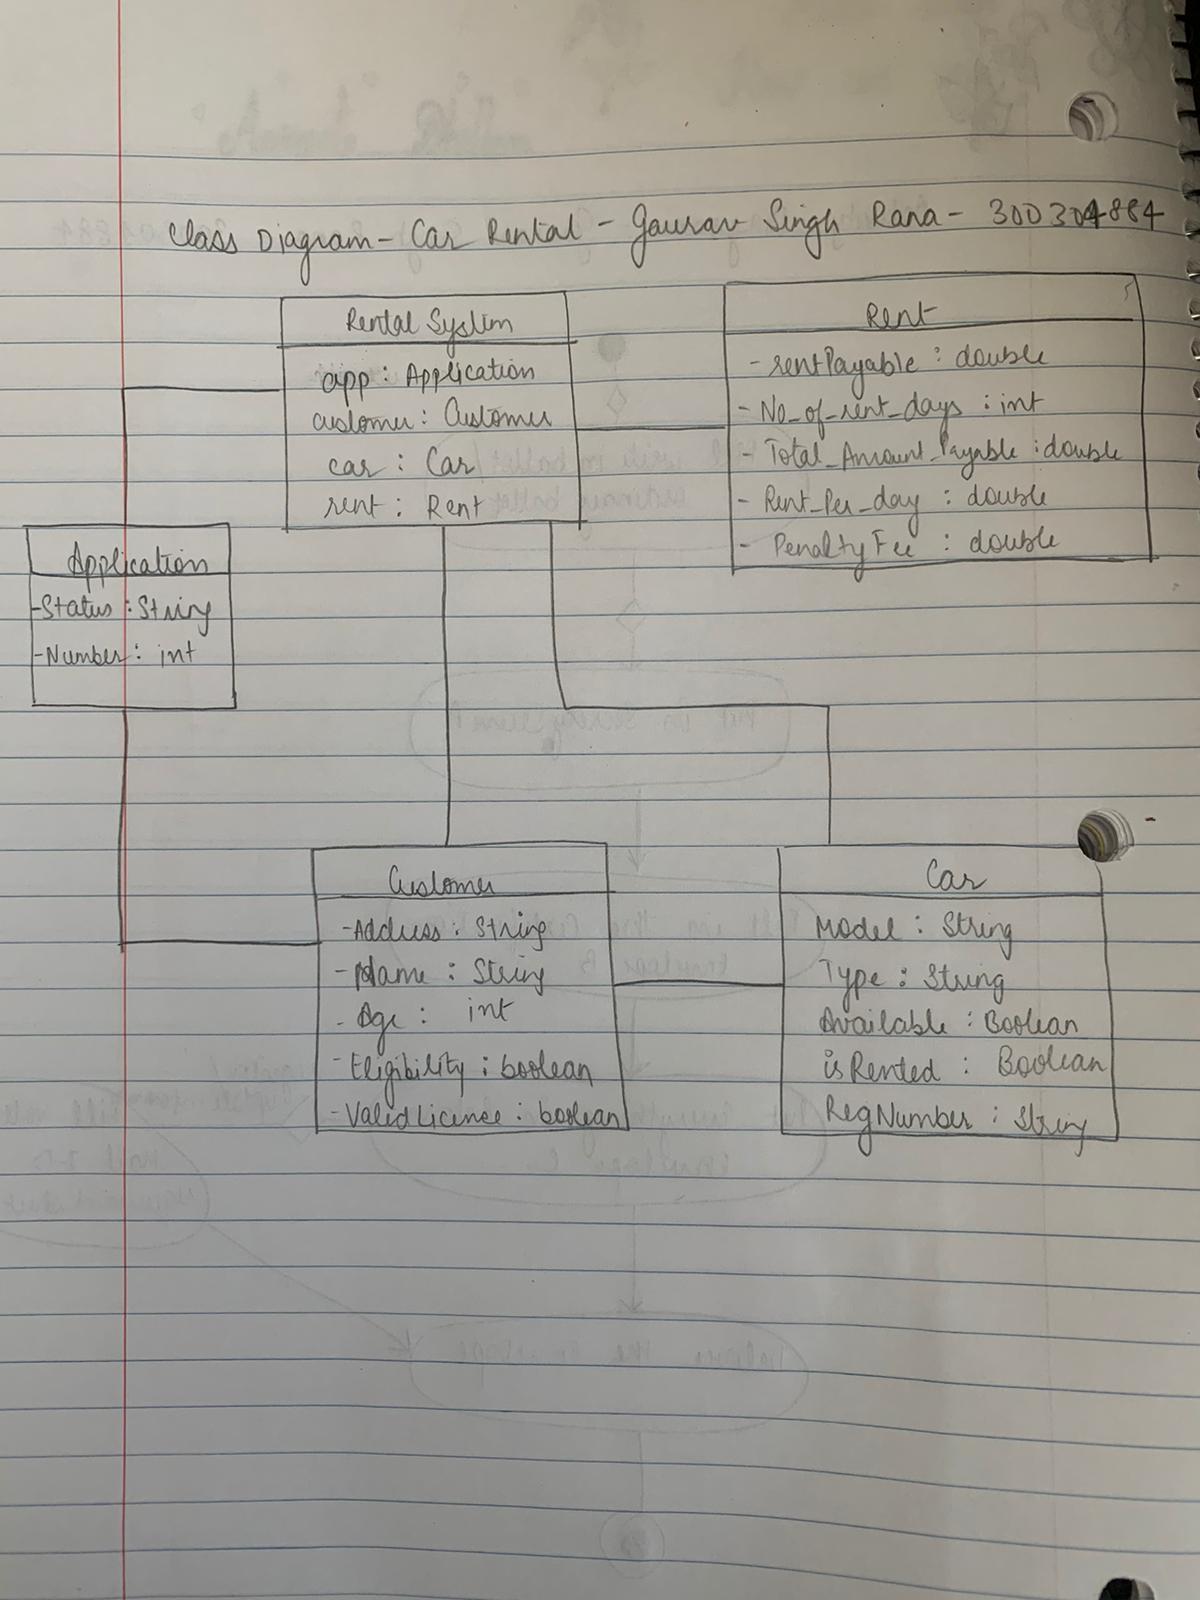 Class Diagram - Car Rental - Gaurav Singh Rana - 300304884
Rental System
app : Application
customer : Customer
car : Car
rent : Rent
Rent
- rentPayable : double
- No_of_rent_days : int
- Total_Amount_Payable : double
- Rent_Per_day : double
- PenaltyFee : double
Application
- Status : String
- Number : int
Customer
- Address : String
- Name : String
- Age : int
- Eligibility : boolean
- ValidLicense : boolean
Car
Model : String
Type : String
Available : Boolean
isRented : Boolean
RegNumber : String